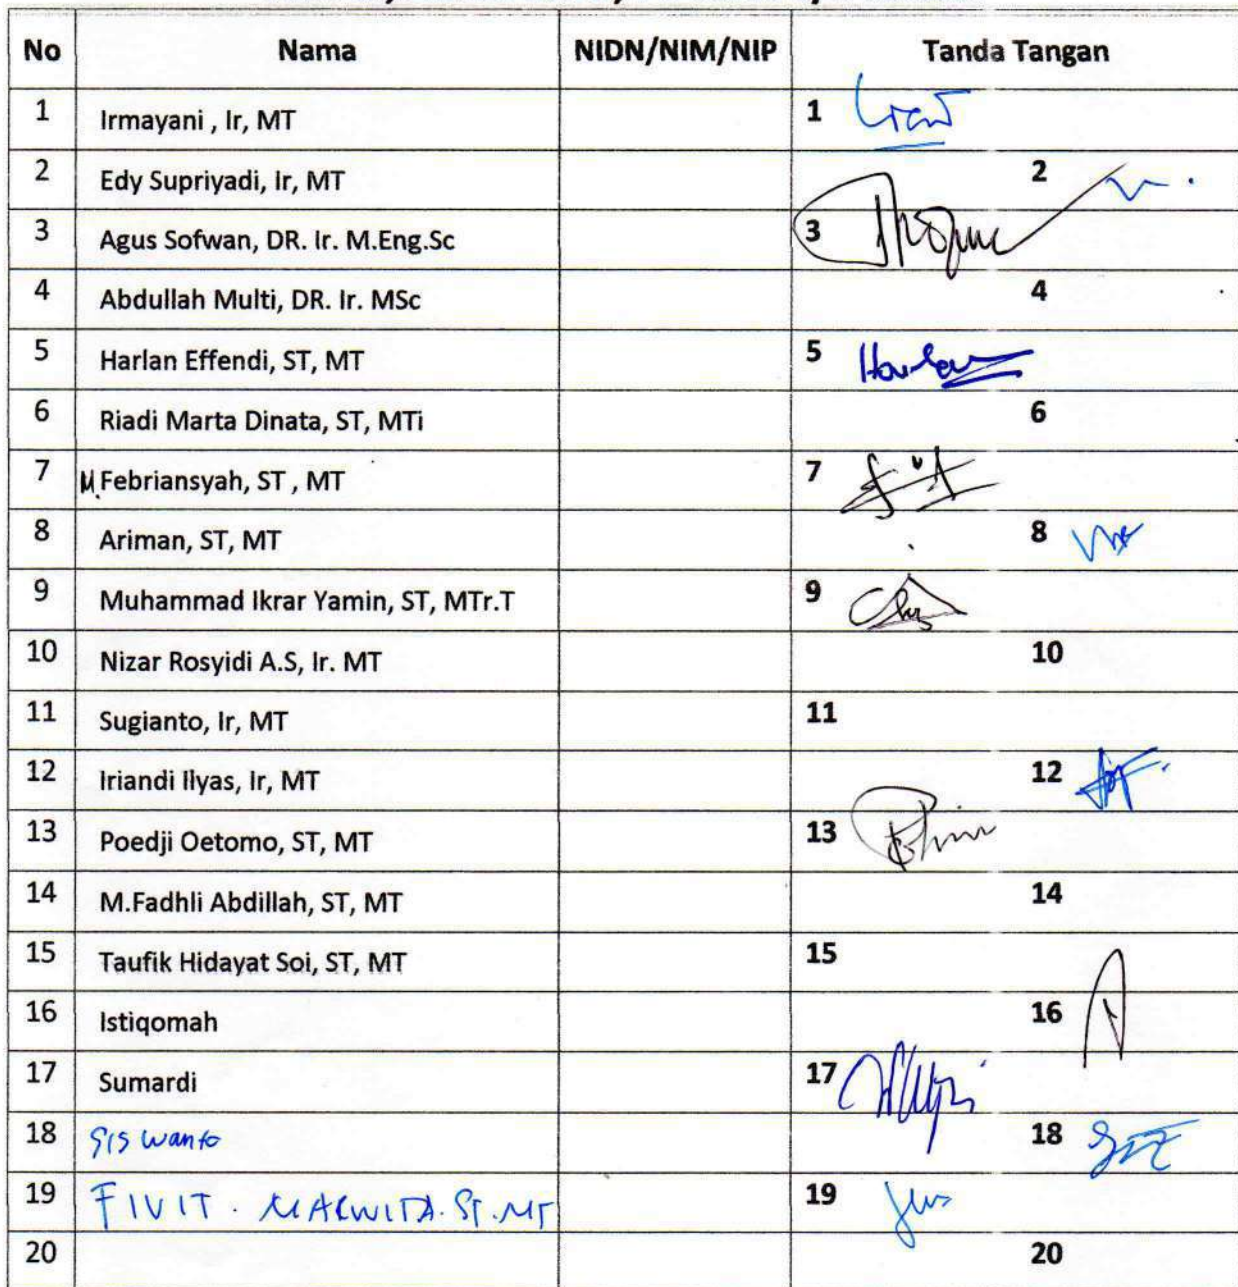 No Nama NIDN/NIM/NIP Tanda Tangan
1 Irmayani , Ir, MT 1
2 Edy Supriyadi, Ir, MT 2
3 Agus Sofwan, DR. Ir. M.Eng.Sc 3
4 Abdullah Multi, DR. Ir. MSc 4
5 Harlan Effendi, ST, MT 5 Harlan
6 Riadi Marta Dinata, ST, MTi 6
7 M.Febriansyah, ST , MT 7
8 Ariman, ST, MT 8
9 Muhammad Ikrar Yamin, ST, MTr.T 9
10 Nizar Rosyidi A.S, Ir. MT 10
11 Sugianto, Ir, MT 11
12 Iriandi Ilyas, Ir, MT 12
13 Poedji Oetomo, ST, MT 13
14 M.Fadhli Abdillah, ST, MT 14
15 Taufik Hidayat Soi, ST, MT 15
16 Istiqomah 16
17 Sumardi 17
18 Siswanto 18
19 FIVIT. MARWITA. ST. MT 19
20 20